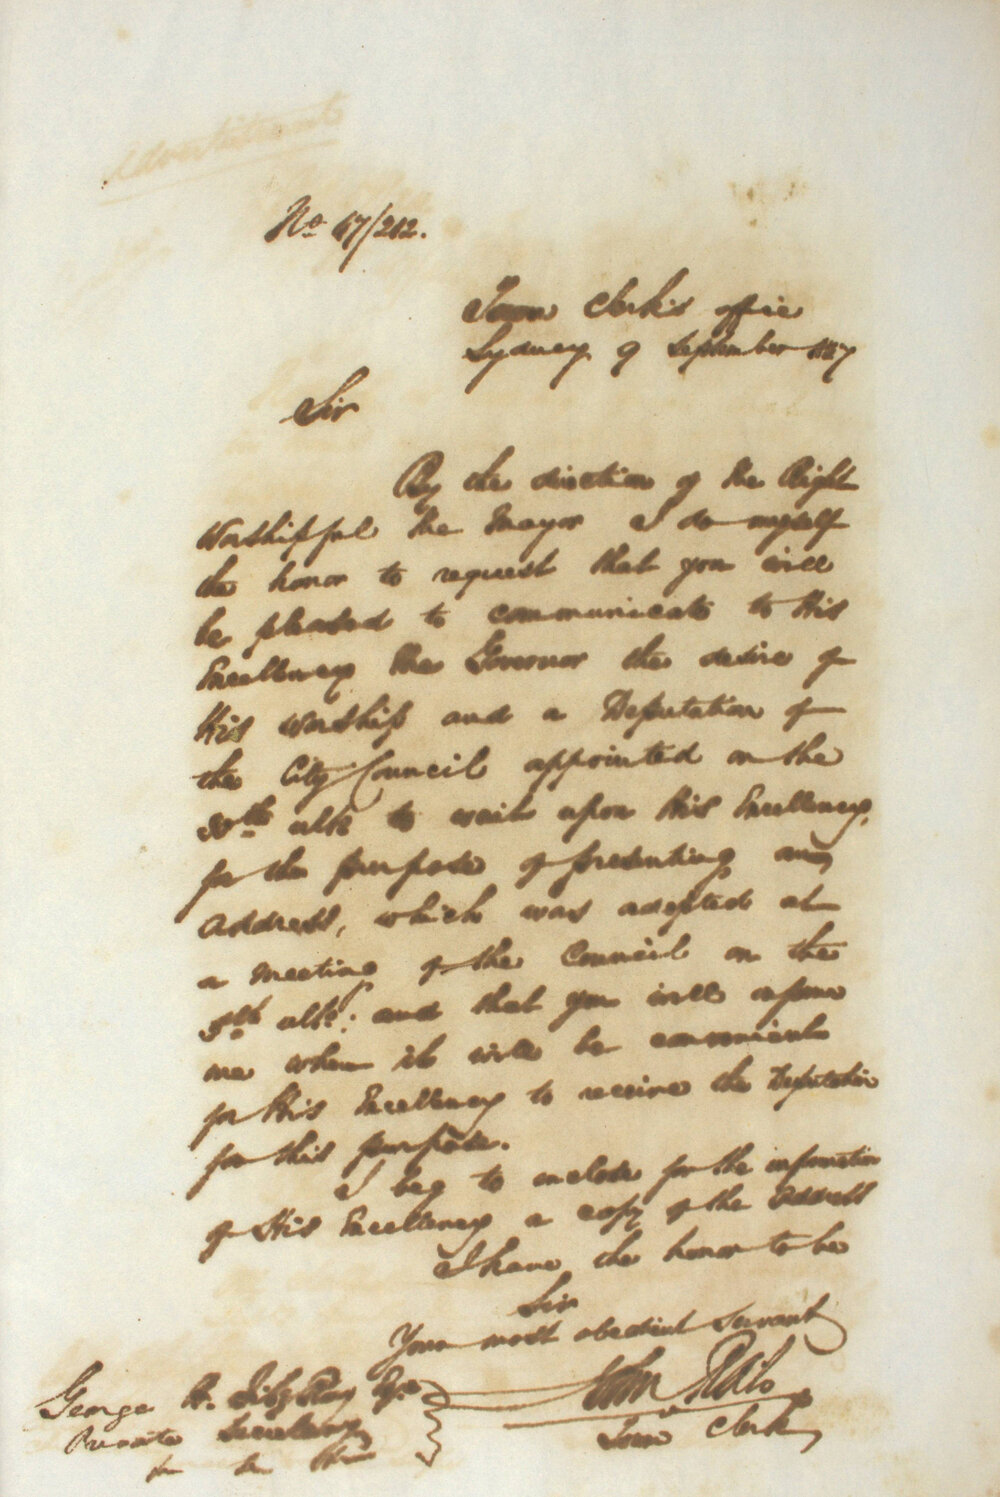 No 47/212.
Town Clerk's office
Sydney 9 September 1847
Sir
By the direction of the Right
Worshipful the Mayor I do myself
the honor to request that you will
be pleased to communicate to His
Excellency the Governor the desire of
His Worship and a Deputation of
the City Council appointed on the
30th ulto to wait upon His Excellency,
for the purpose of presenting an
Address, which was adopted at
a meeting of the Council on the
ulto: and that you will inform
me when it will be convenient
for His Excellency to receive the Deputation
for this purpose.
I beg to enclose for the information
of His Excellency a copy of the Address
I have the honor to be
Sir
Your most obedient Servant
John Rae
Town Clerk
George Fitz Roy Esqre
Private Secretary